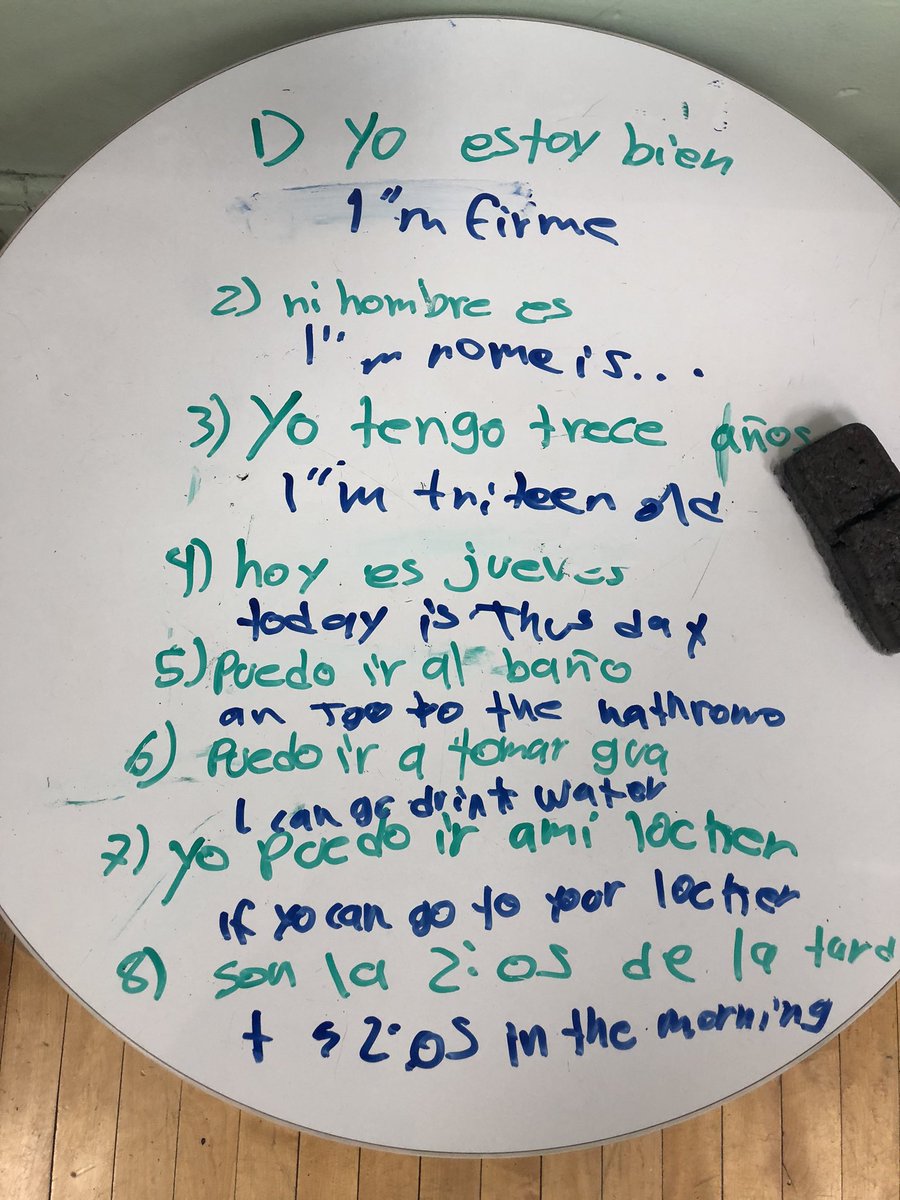 1) Yo estoy bien
I"m firme
2) ni hombre es
I"m nome is...
3) Yo tengo trece años
I"m triteen old
4) hoy es jueves
today is Thus day
5) Puedo ir al baño
an Too to the hathromo
6) Puedo ir a tomar gua
I can go drink water
7) yo puedo ir ami locker
if yo can go to your locker
8) son la 2:05 de la tard
t s 2:05 in the morning